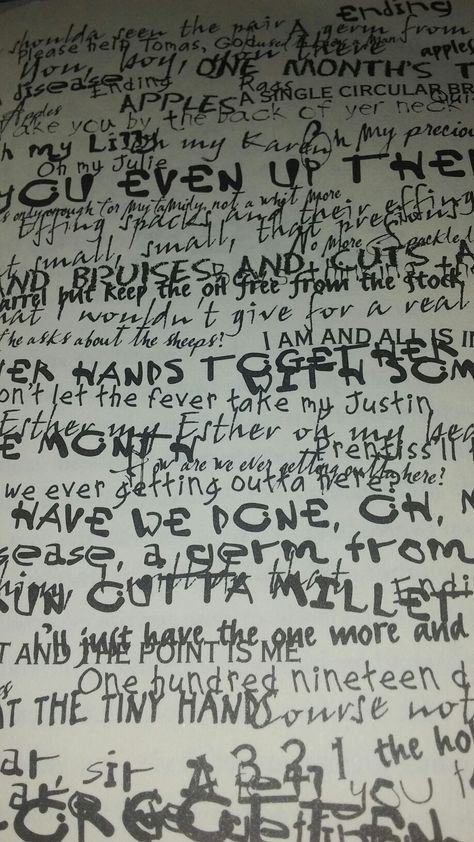 Ending
shoulda seen the pair A germ from
Please help Tomas, God
You, boy, you
apples
ONE MONTH'S T
disease
Ending
Rags
A SINGLE CIRCULAR BR
APPLES
Apples
ake you by the back of yer neck
h my Lizzy
Oh my Karen
Oh my precious
Oh my Julie
YOU EVEN UP THE
only enough for my family, not a whit more
Effing spacks and their effing
t small, small, that precious
No more
ND BRUISES AND CUTS A
arrel but keep the oil free from the stock
hat I wouldn't give for a real
f he asks about the sheeps?
I AM AND ALL IS I
ER HANDS TOGETHER
WITH SOM
on't let the fever take my Justin
Esther my Esther oh my bea
E MONTH
Prentiss'll
How are we ever getting outta here?
we ever getting outta here?
HAVE WE DONE, OH,
sease, a germ from
thing
that
UN OUTTA MILLET
Endi
I'll just have the one more and
T AND THE POINT IS ME
One hundred nineteen d
AT THE TINY HANDS
Course not
ar, sir
A 3 2 1
the ho
you